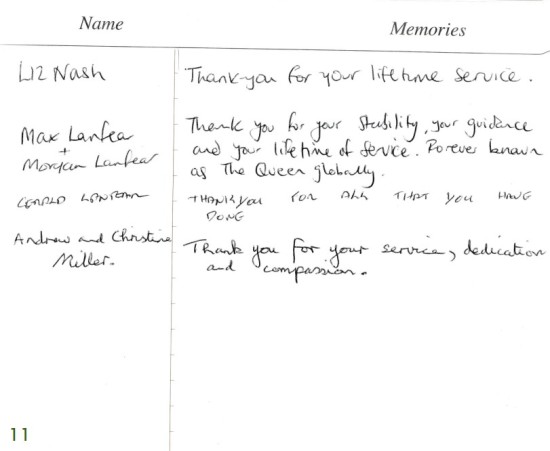 Name Memories
Liz Nash Thank-you for your lifetime service.
Max Lanfear Thank you for your stability, your guidance
+ and your lifetime of service. Forever known
Morgan Lanfear as The Queen globally.
THANK YOU FOR ALL THAT YOU HAVE
DONE
Andrew and Christine Thank you for your service, dedication
Miller. and compassion.
11